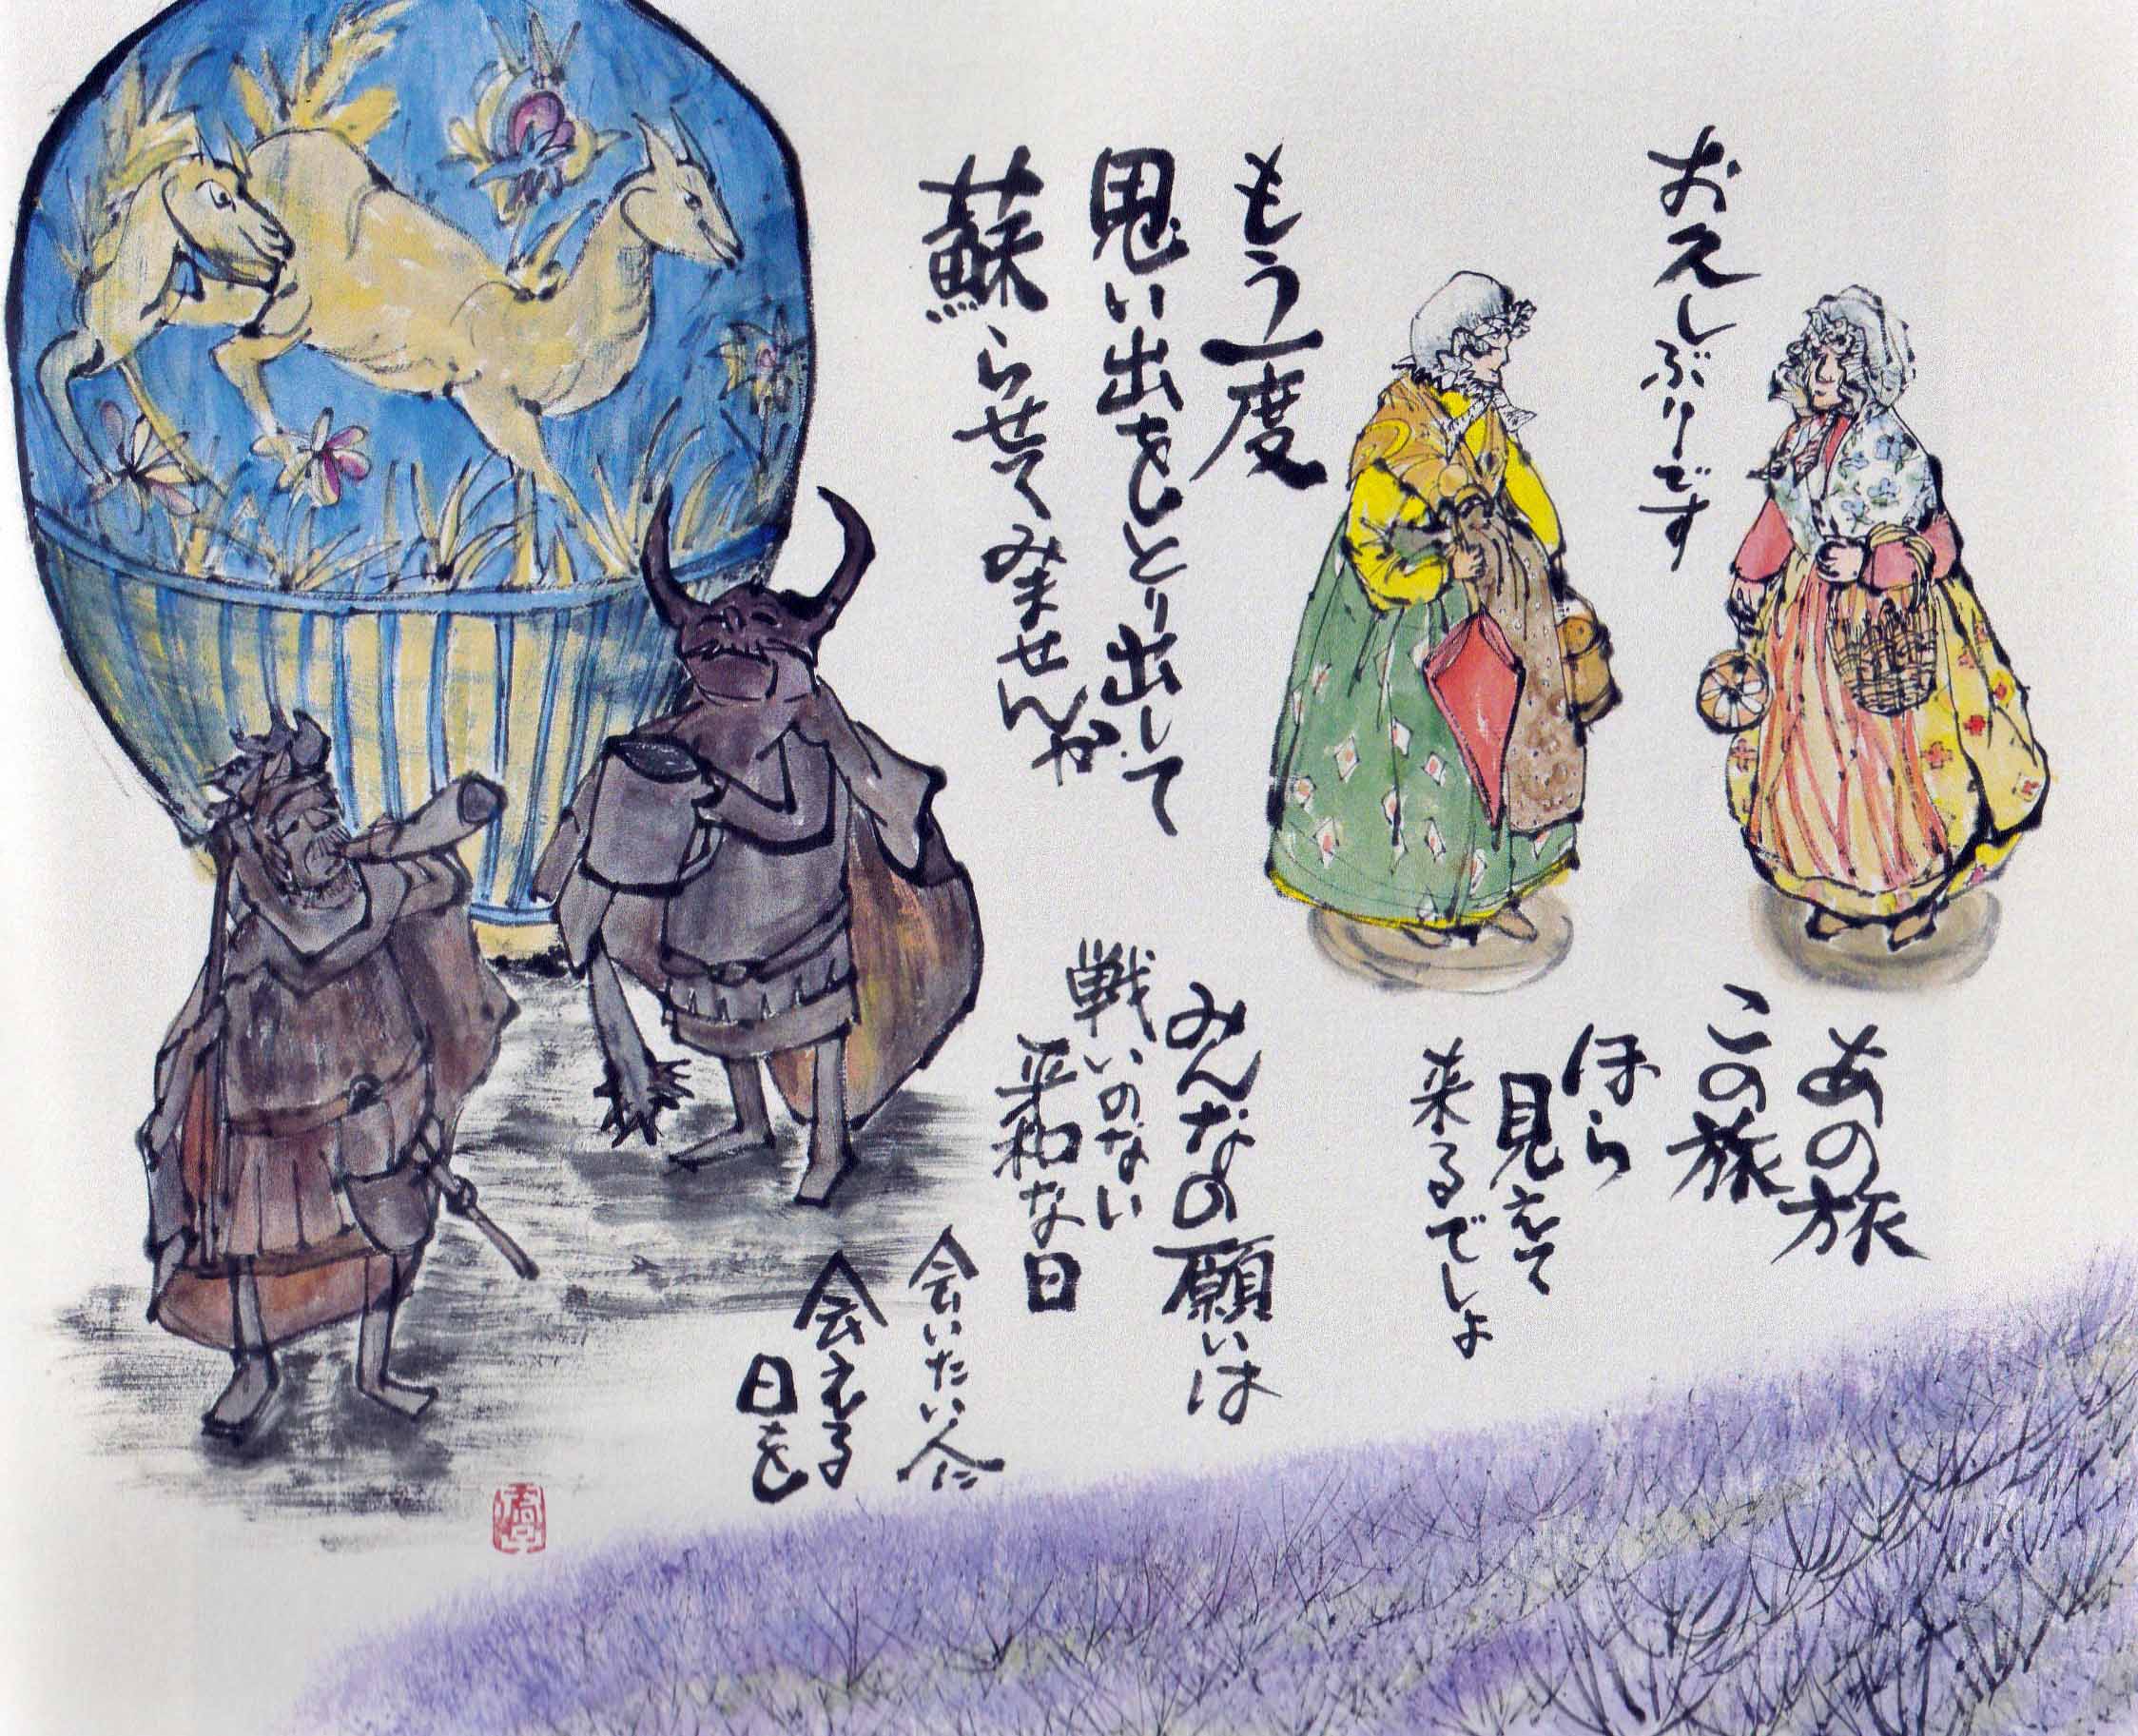 おえしぶりーです
もう一度
思い出をとり出して
蘇らせてみませんか
あの旅
この旅
ほら
見えて
来るでしょ
みんなの願いは
戦いのない
平和な日
会いたい人に
会える
日を